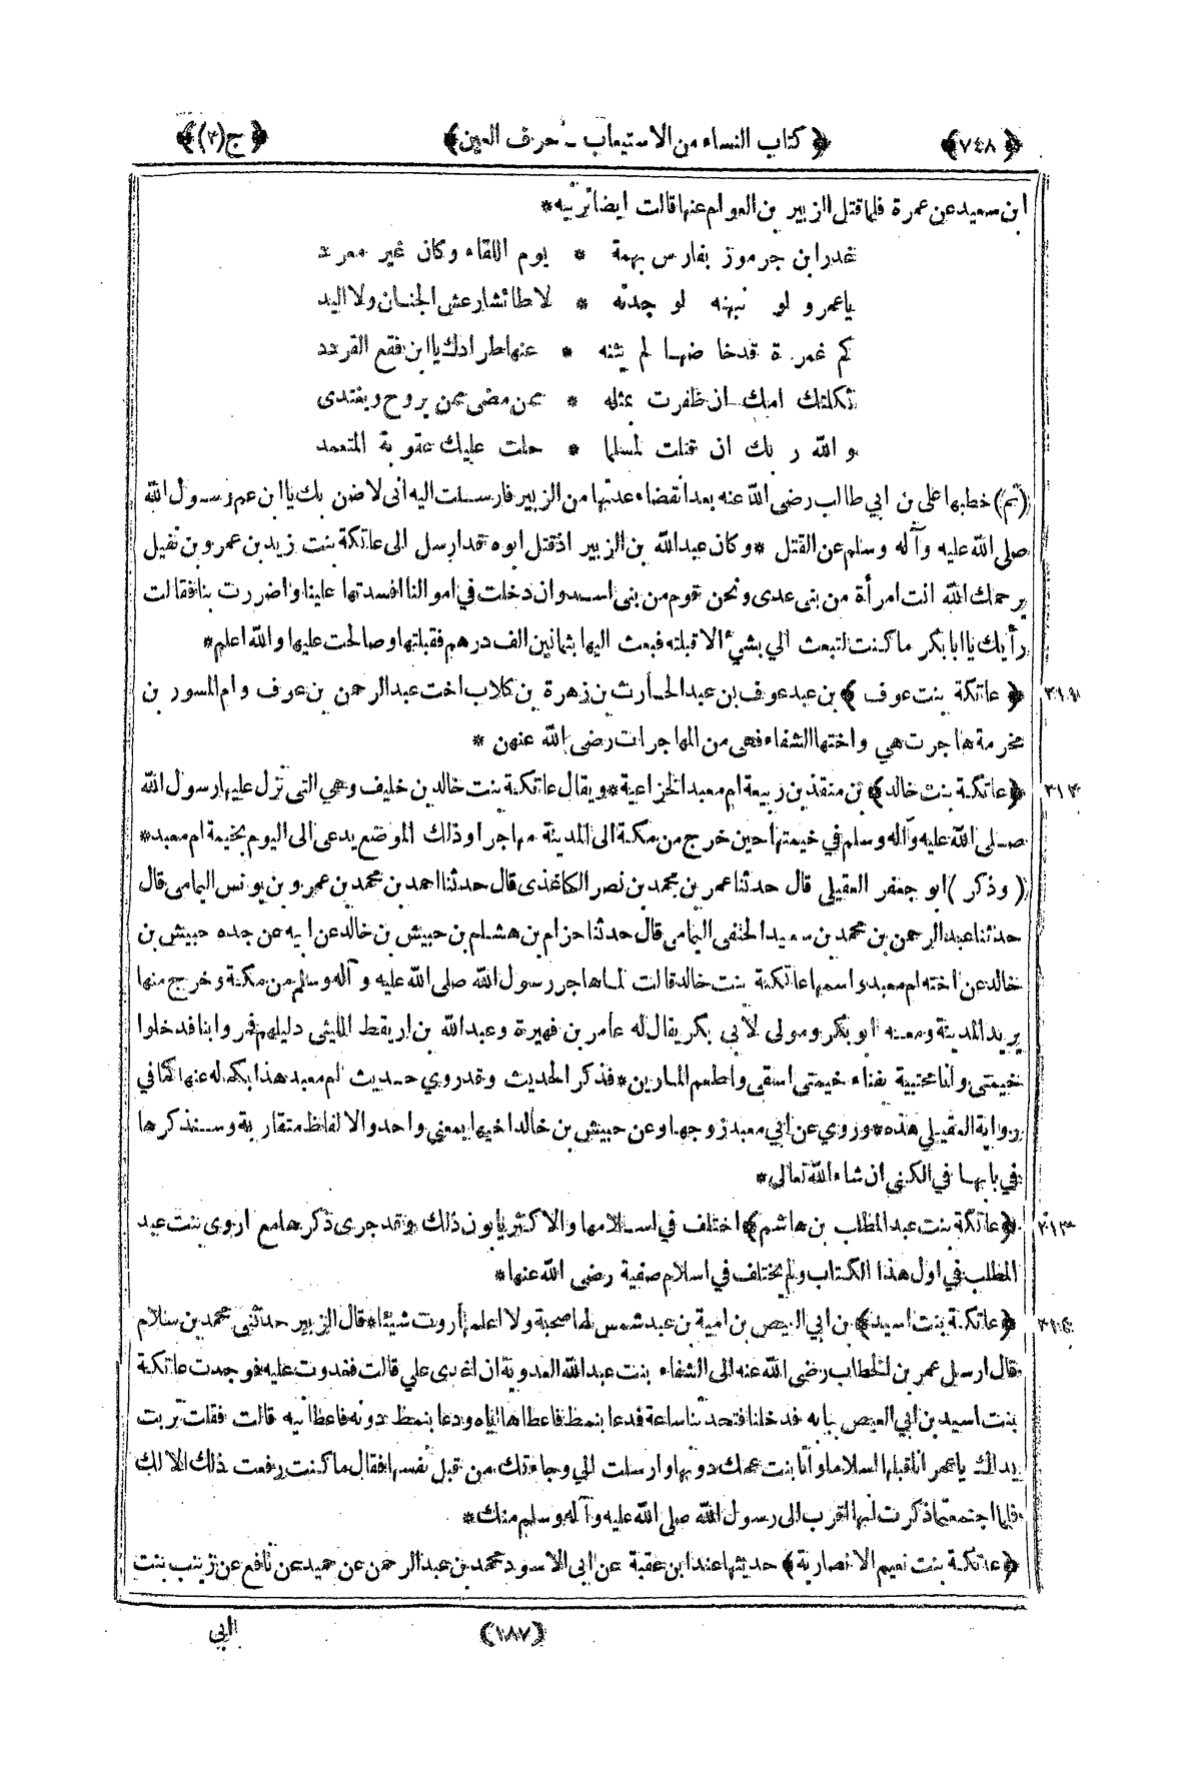 ﴿٧٤٨﴾ ﴿كتاب النساء من الاستيعاب - حرف العين﴾ ﴿ج(٢)﴾
ابن سعيد عن عمرة فلما قتل الزبير بن العوام عنها قالت ايضا ترثيه*
غدر ابن جرموز بفارس بهمة * يوم اللقاء وكان غير معرد
يا عمرو لو نبهته لوجدته * لا طائشا رعش الجنان ولا اليد
كم غمرة قد خاضها لم يثنه * عنها طرادك يا ابن فقع القردد
ثكلتك امك ان ظفرت بمثله * ممن مضى ممن يروح ويغتدى
والله ربك ان قتلت لمسلما * حلت عليك عقوبة المتعمد
(ثم) خطبها على بن ابي طالب رضى الله عنه بعد انقضاء عدتها من الزبير فارسلت اليه انى لاضن بك يا ابن عم رسول الله
صلى الله عليه وآله وسلم عن القتل *وكان عبد الله بن الزبير اذ قتل ابوه قد ارسل الى عاتكة بنت زيد بن عمرو بن نفيل
يرحمك الله انت امرأة من بنى عدى ونحن قوم من بنى اسد وان دخلت في اموالنا افسدتها علينا واضررت بنا فقالت
رأيك يا ابا بكر ما كنت لتبعث الي بشيء الا قبلته فبعث اليها بثمانين الف درهم فقبلتها وصالحت عليها والله اعلم*
﴿عاتكة بنت عوف﴾ بن عبد عوف بن عبد الحارث بن زهرة بن كلاب اخت عبد الرحمن بن عوف وام المسور بن
مخرمة هاجرت هي واختها الشفاء فهى من المهاجرات رضى الله عنهن *
﴿عاتكة بنت خالد﴾ بن منقذ بن ربيعة ام معبد الخزاعية*ويقال عاتكة بنت خالد بن خليف وهي التى نزل عليها رسول الله
صلى الله عليه وآله وسلم في خيمتها حين خرج من مكة الى المدينة مهاجرا وذلك الموضع يدعى الى اليوم بخيمة ام معبد*
(وذكر) ابو جعفر العقيلي قال حدثنا عمر بن محمد بن نصر الكاغذى قال حدثنا احمد بن محمد بن عمرو بن يونس اليمامى قال
حدثنا عبد الرحمن بن محمد بن سعيد الحنفى اليمامى قال حدثنا حزام بن هشام بن حبيش بن خالد عن ابيه عن جده حبيش بن
خالد عن اخته ام معبد واسمها عاتكة بنت خالد قالت لما هاجر رسول الله صلى الله عليه وآله وسلم من مكة وخرج منها
يريد المدينة ومعه ابو بكر ومولى لأبي بكر يقال له عامر بن فهيرة وعبد الله بن اريقط الليثى دليلهم فمروا بنا فدخلوا
خيمتى وانا محتبية بفناء خيمتى اسقى واطعم المارين*فذكر الحديث وقد روي حديث ام معبد هذا بكماله عنها كما في
رواية العقيلي هذه*وروي عن ابي معبد زوجها وعن حبيش بن خالد اخيها بمعنى واحد والالفاظ متقاربة وسنذكرها
في بابها في الكنى ان شاء الله تعالى*
﴿عاتكة بنت عبد المطلب بن هاشم﴾ اختلف في اسلامها والاكثر يأبون ذلك وقد جرى ذكرها مع اروى بنت عبد
المطلب في اول هذا الكتاب ولم يختلف في اسلام صفية رضى الله عنها*
﴿عاتكة بنت اسيد﴾ بن ابي العيص بن امية بن عبد شمس لها صحبة ولا اعلمها روت شيئا*قال الزبير حدثنى محمد بن سلام
قال ارسل عمر بن الخطاب رضى الله عنه الى الشفاء بنت عبد الله العدوية ان اغدى علي قالت فغدوت عليه فوجدت عاتكة
بنت اسيد بن ابي العيص ببابه فدخلنا فتحدثنا ساعة فدعا بنمط فاعطاها اياه ودعا بنمط دونه فاعطانيه قالت فقلت تربت
يداك يا عمر انا قبلها اسلاما وانا بنت عمك دونها وارسلت الي وجاءتك من قبل نفسها فقال ما كنت رفعت ذلك الا لك
فلما اجتمعتما ذكرت انها اقرب الى رسول الله صلى الله عليه وآله وسلم منك*
﴿عاتكة بنت نعيم الانصارية﴾ حديثها عند ابن عقبة عن ابى الاسود محمد بن عبد الرحمن عن حميد عن نافع عن زينب بنت
﴿١٨٧﴾ ابي